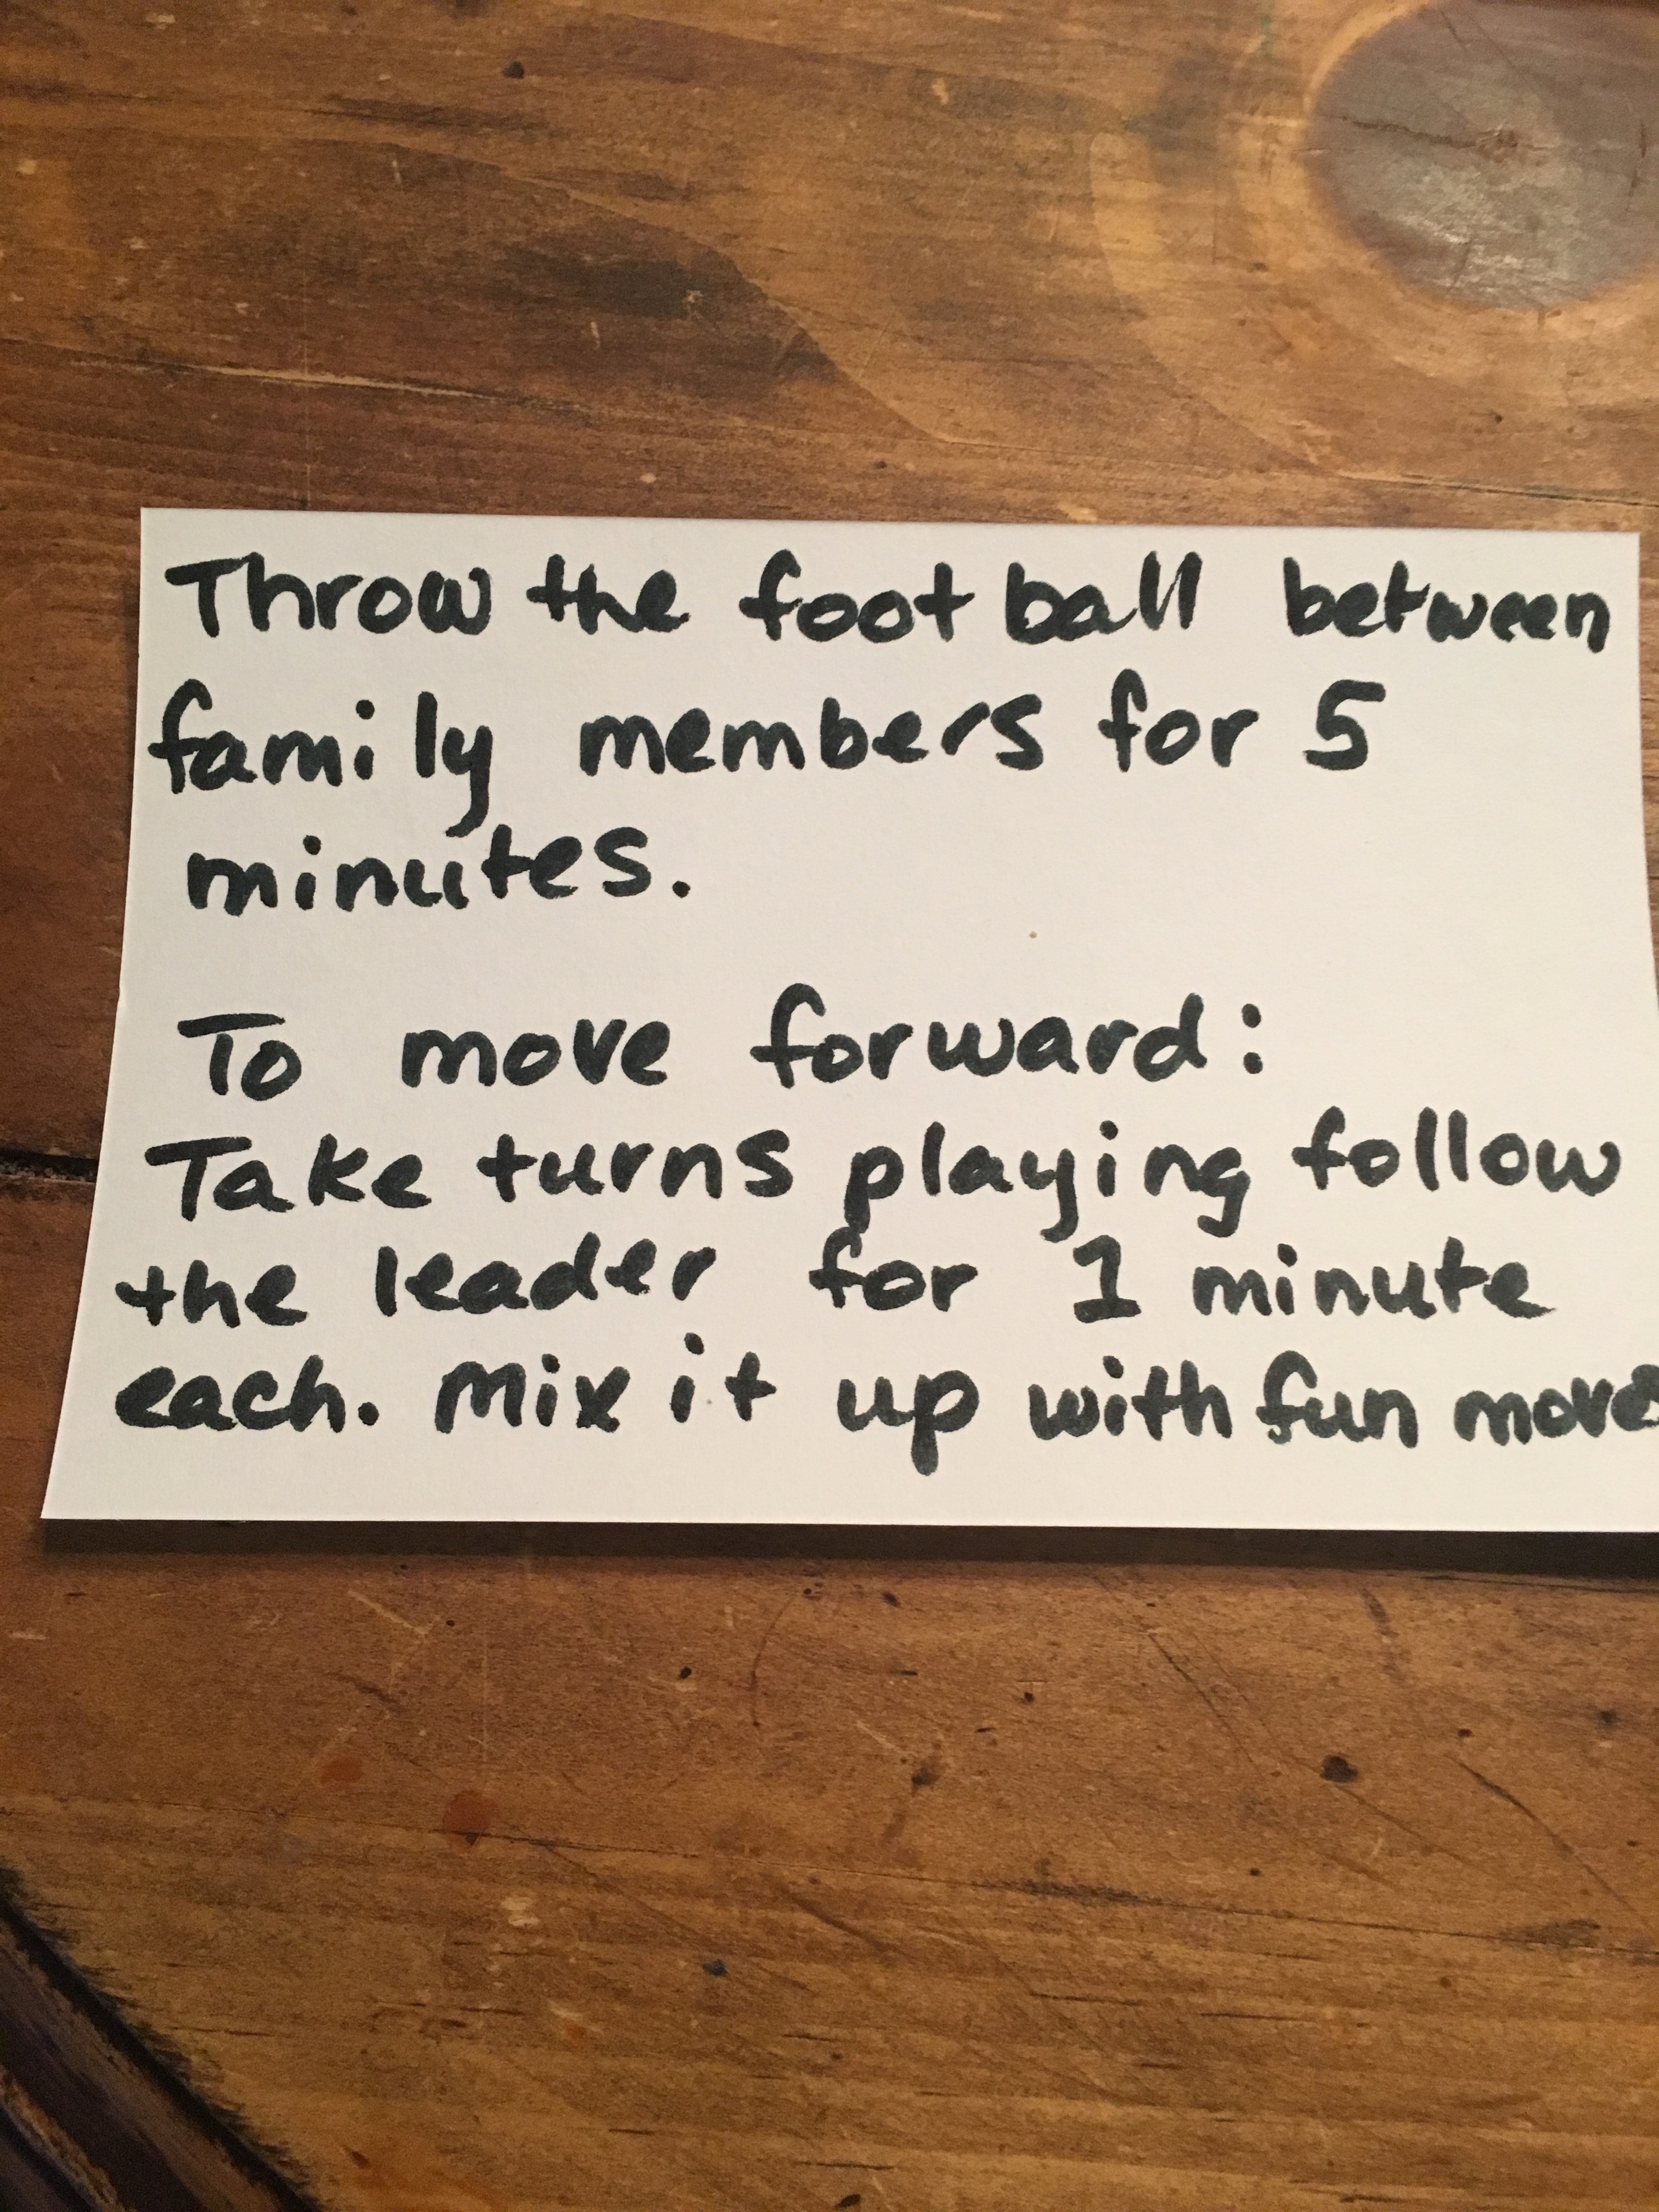 Throw the football between
family members for 5
minutes.
To move forward:
Take turns playing follow
the leader for 1 minute
each. Mix it up with fun moves